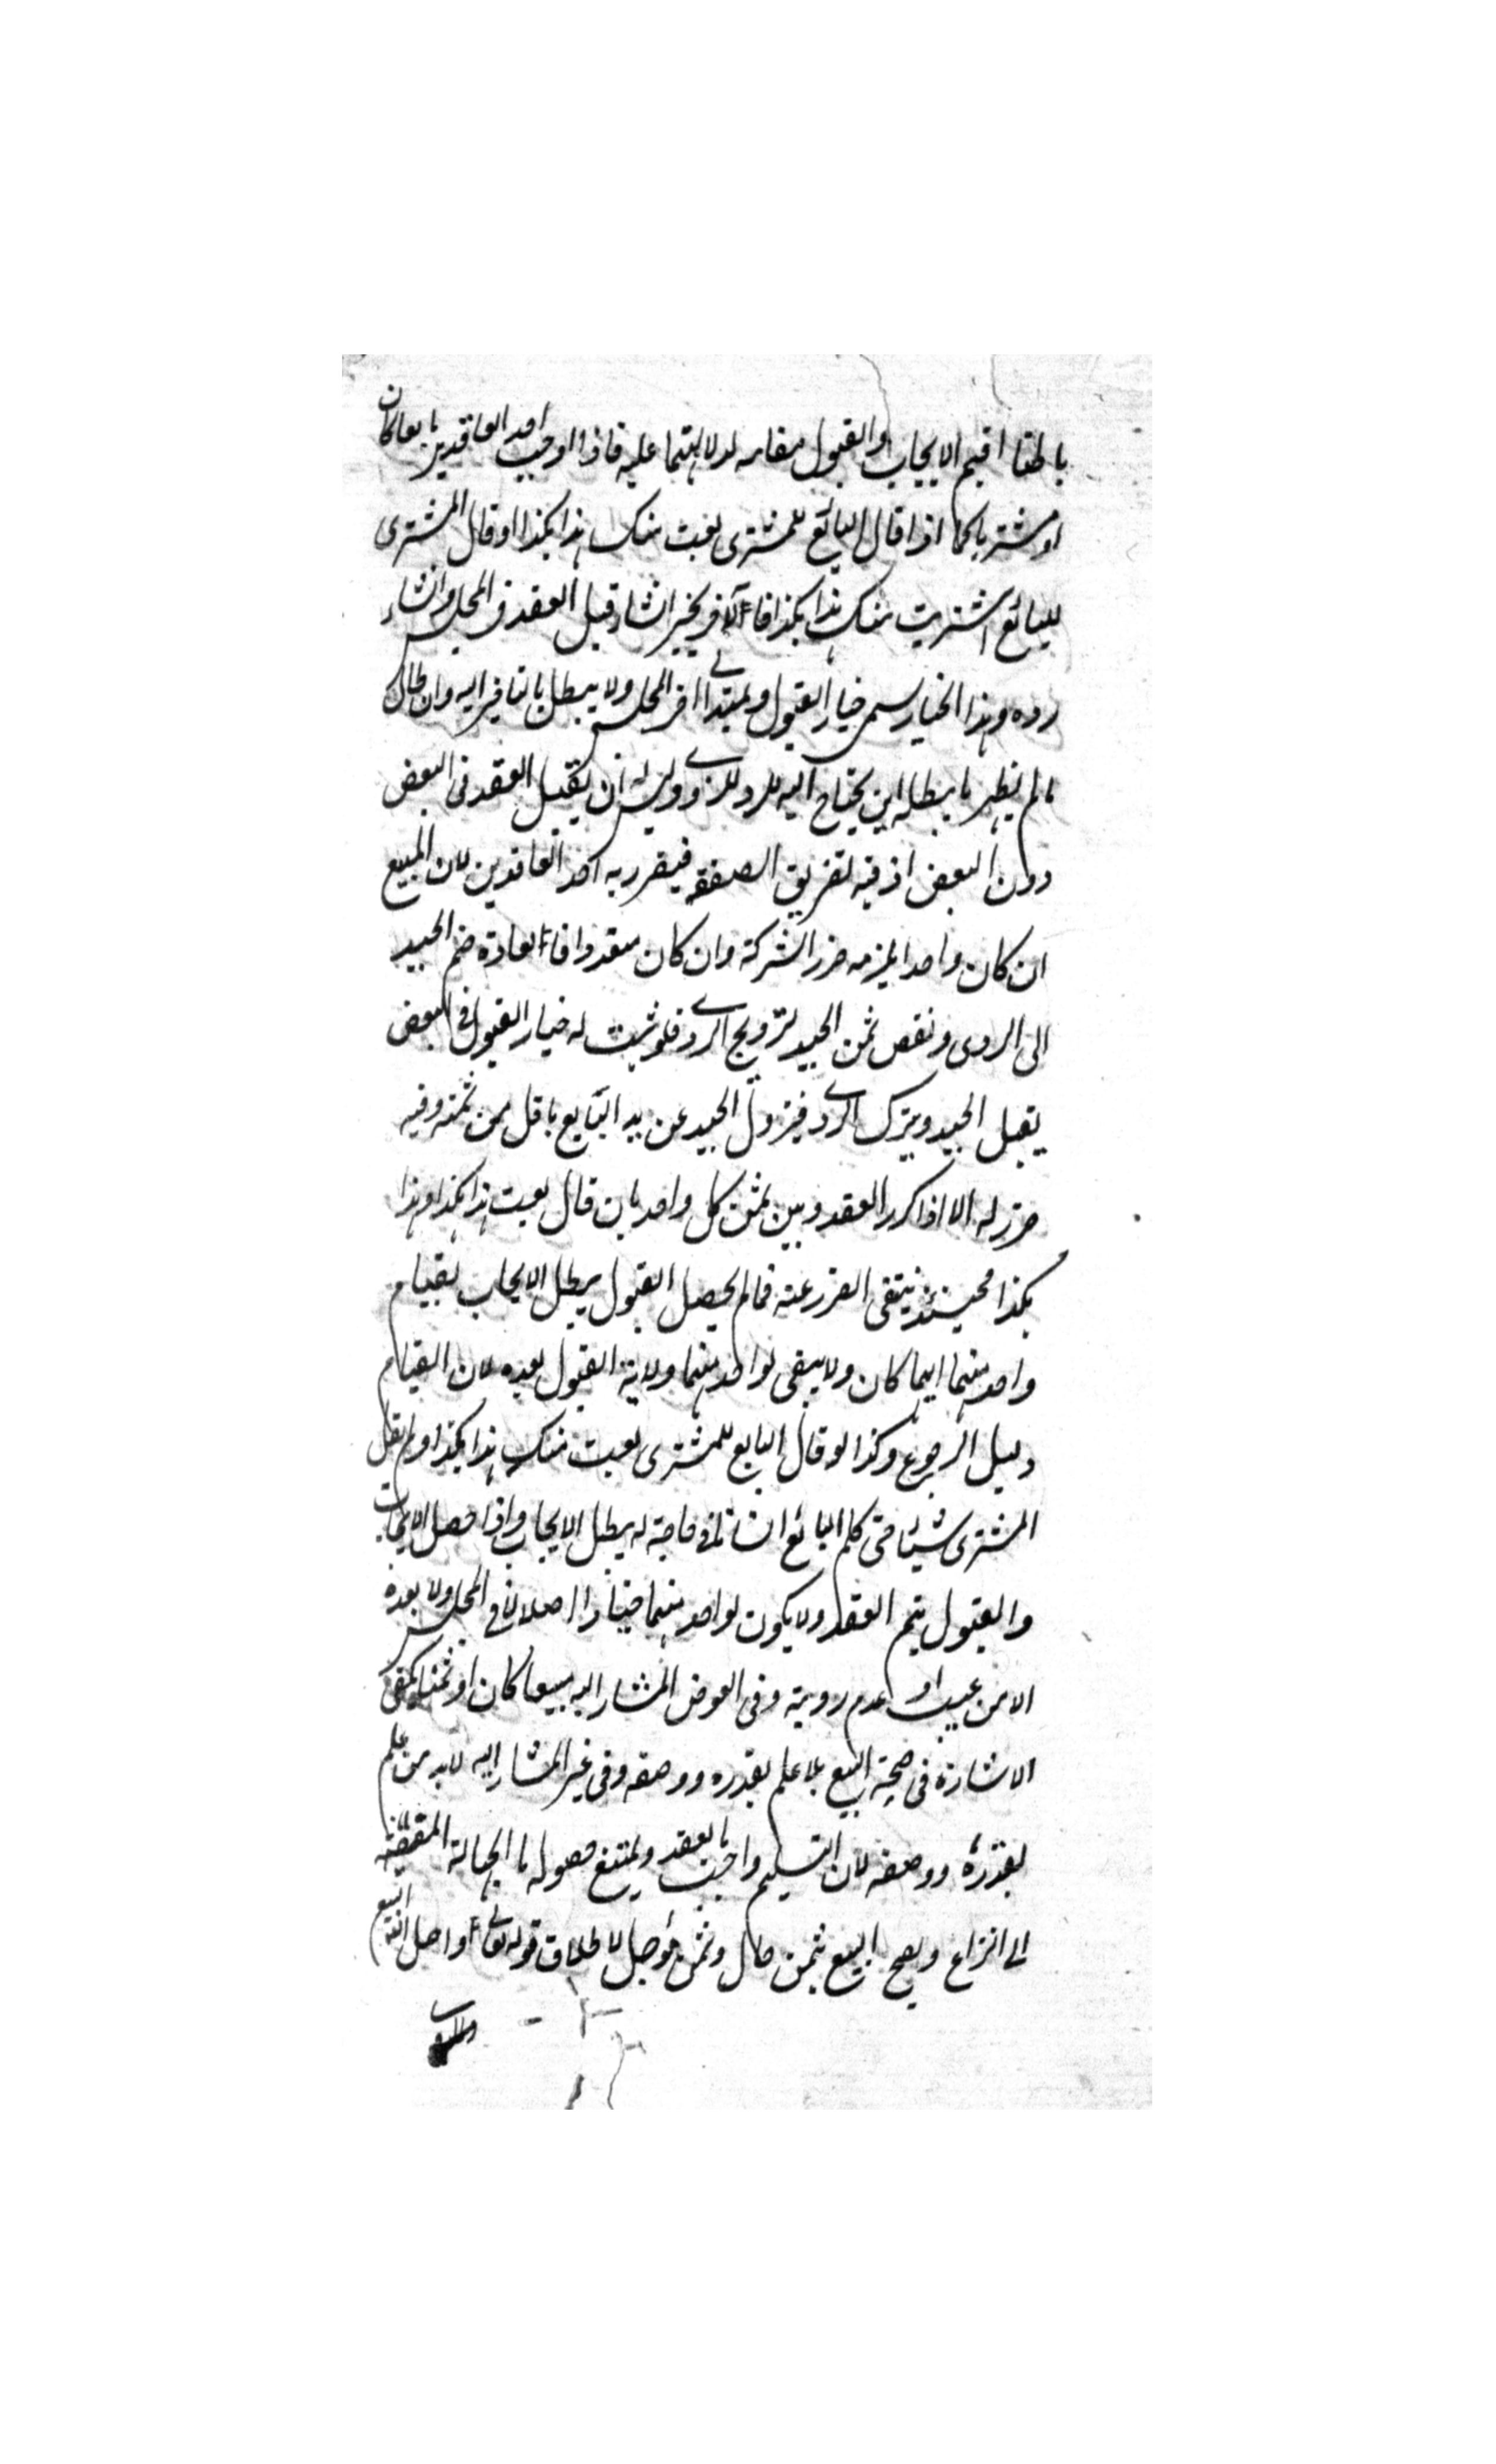 باطنا اقيم الايجاب والقبول مقامه لدلالتهما عليه فاذا اوجب احد العاقدين بايعا كان
او مشتريا كما اذا قال البائع للمشترى بعت منك هذا بكذا او قال المشترى
للبائع اشتريت منك هذا بكذا فالآخر يخير ان شاء قبل العقد فى المجلس وان شاء
رده وهذا الخيار يسمى خيار القبول ويمتد الى اخر المجلس ولا يبطل بالتاخير اليه وان طال
ما لم يظهر ما يبطله اين يحتاج اليه للرد وليس له ان يقبل العقد فى البعض
دون البعض اذ فيه تفريق الصفقة فيتضرر به احد العاقدين لان المبيع
ان كان واحدا يلزمه ضرر الشركة وان كان متعددا فالعادة ضم الجيد
الى الردى ونقص ثمن الجيد لترويج الردى فلو ثبت له خيار القبول فى البعض
يقبل الجيد ويترك الردى فيزول الجيد عن يد البايع باقل من ثمنه وفيه
ضرر له الا اذا كرر العقد وبين ثمن كل واحد بان قال بعت هذا بكذا وهذا
بكذا فحينئذ ينتفى الضرر عنه فما لم يحصل القبول يبطل الايجاب بقيام
واحد منهما ايهما كان ولا يبقى لواحد منهما ولاية القبول بعده لان القيام
دليل الرجوع وكذا لو قال البايع للمشترى بعت منك هذا بكذا ولم يقل
المشترى شيئا حتى كلم البائع انسانا فى حاجة له يبطل الايجاب واذا حصل الايجاب
والقبول يتم العقد ولا يكون لواحد منهما خيارا اصلا لا فى المجلس ولا بعده
الا من عيب او عدم روية وفى العوض المشار اليه مبيعا كان او ثمنا يكفى
الاشارة فى صحة البيع بلا علم بقدره ووصفه وفى غير المشار اليه لابد من علم
بقدره ووصفه لان التسليم واجب بالعقد ويمتنع حصوله بالجهالة المفضية
الى النزاع ويصح البيع بثمن حال وثمن مؤجل لاطلاق قوله تعالى واحل الله البيع